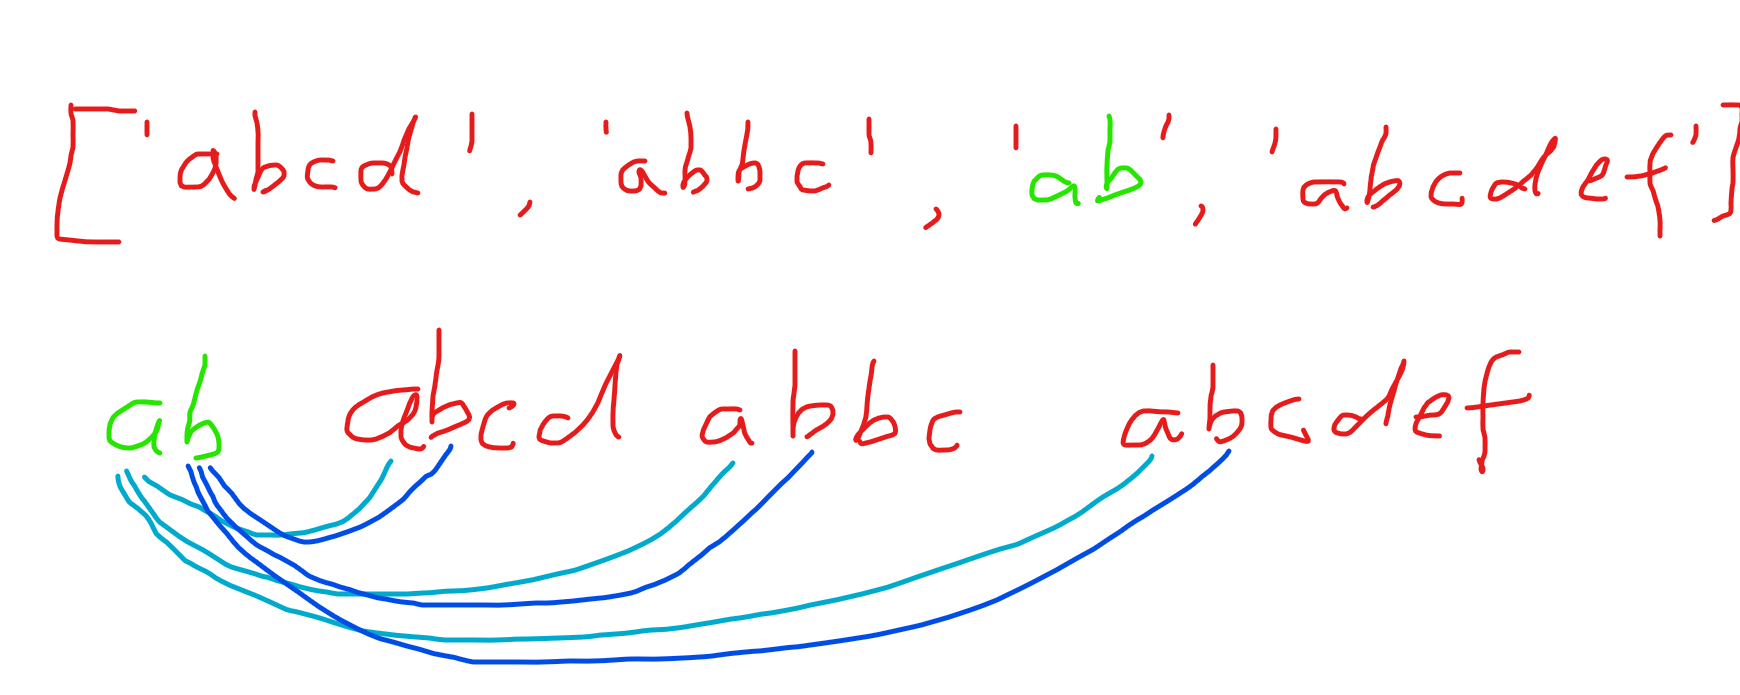 ['abcd', 'abbc', 'ab', 'abcdef']
ab abcd abbc abcdef